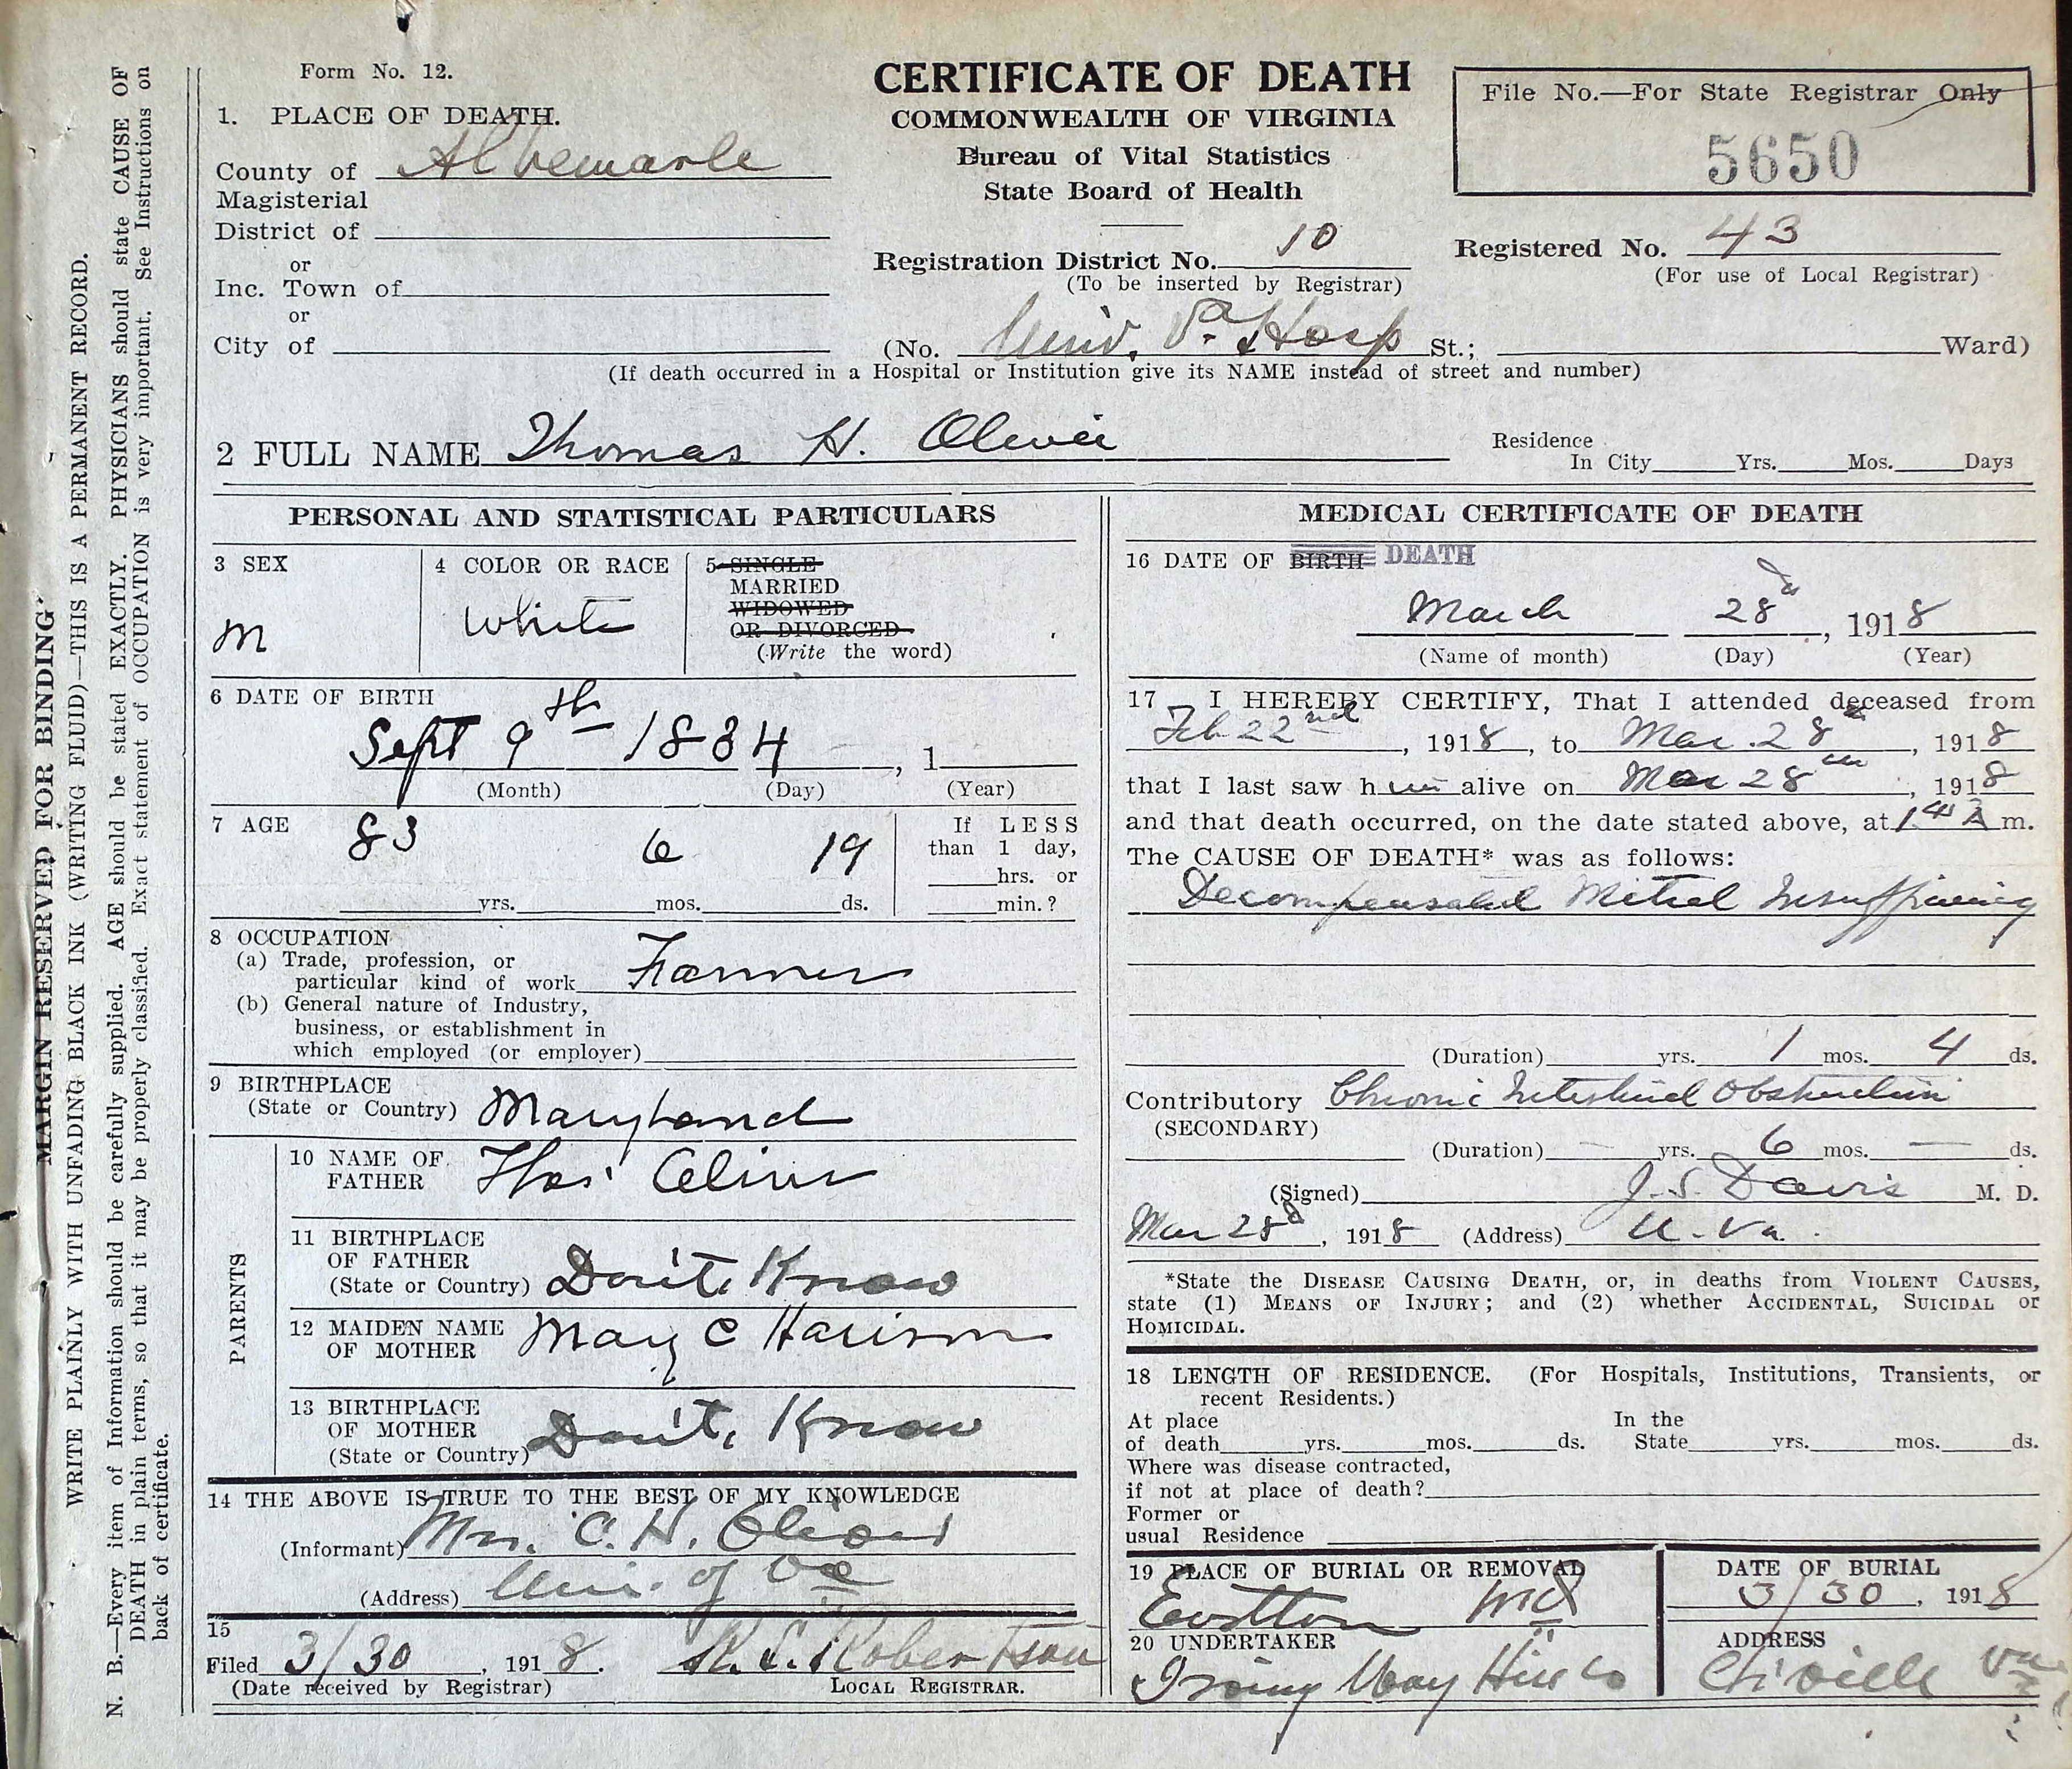 Form No. 12.
CERTIFICATE OF DEATH
COMMONWEALTH OF VIRGINIA
Bureau of Vital Statistics
State Board of Health
File No.—For State Registrar Only
5650
1. PLACE OF DEATH.
County of Albemarle
Magisterial
District of
or
Inc. Town of
or
City of
Registration District No. 10
(To be inserted by Registrar)
Registered No. 43
(For use of Local Registrar)
(No. Univ. Va Hosp St.; Ward)
(If death occurred in a Hospital or Institution give its NAME instead of street and number)
2 FULL NAME Thomas H. Oliver
Residence
In City Yrs. Mos. Days
PERSONAL AND STATISTICAL PARTICULARS
3 SEX
M
4 COLOR OR RACE
White
5 SINGLE
MARRIED
WIDOWED
OR DIVORCED
(Write the word)
6 DATE OF BIRTH
Sept 9th 1834, 1
(Month) (Day) (Year)
7 AGE
83 6 19
yrs. mos. ds.
If LESS
than 1 day,
hrs. or
min.?
8 OCCUPATION
(a) Trade, profession, or
particular kind of work Farmer
(b) General nature of Industry,
business, or establishment in
which employed (or employer)
9 BIRTHPLACE
(State or Country) Maryland
PARENTS
10 NAME OF
FATHER Thos Oliver
11 BIRTHPLACE
OF FATHER
(State or Country) Don't Know
12 MAIDEN NAME
OF MOTHER Mary C Harison
13 BIRTHPLACE
OF MOTHER
(State or Country) Don't Know
14 THE ABOVE IS TRUE TO THE BEST OF MY KNOWLEDGE
(Informant) Mrs. C. H. Oliver
(Address) Uni. of Va
15
Filed 3/30, 1918.
(Date received by Registrar)
R. L. Robertson
LOCAL REGISTRAR.
MEDICAL CERTIFICATE OF DEATH
16 DATE OF BIRTH DEATH
March 28, 1918
(Name of month) (Day) (Year)
17 I HEREBY CERTIFY, That I attended deceased from
Feb 22nd, 1918, to Mar. 28, 1918
that I last saw him alive on Mar 28th, 1918
and that death occurred, on the date stated above, at A m.
The CAUSE OF DEATH* was as follows:
Decompensated Mitral Insufficiency
(Duration) yrs. 1 mos. 4 ds.
Contributory Chronic Intestinal Obstruction
(SECONDARY)
(Duration) — yrs. 6 mos. — ds.
(Signed) J. S. Davis M. D.
Mar 28, 1918 (Address) U. Va.
*State the DISEASE CAUSING DEATH, or, in deaths from VIOLENT CAUSES,
state (1) MEANS OF INJURY; and (2) whether ACCIDENTAL, SUICIDAL or
HOMICIDAL.
18 LENGTH OF RESIDENCE. (For Hospitals, Institutions, Transients, or
recent Residents.)
At place
of death yrs. mos. ds.
In the
State yrs. mos. ds.
Where was disease contracted,
if not at place of death?
Former or
usual Residence
19 PLACE OF BURIAL OR REMOVAL
Eastton Md
DATE OF BURIAL
3/30, 1918
20 UNDERTAKER
Irving Way Hill Co
ADDRESS
Ch'ville Va
MARGIN RESERVED FOR BINDING
WRITE PLAINLY WITH UNFADING BLACK INK (WRITING FLUID)—THIS IS A PERMANENT RECORD.
N. B.—Every item of Information should be carefully supplied. AGE should be stated EXACTLY. PHYSICIANS should state CAUSE OF
DEATH in plain terms, so that it may be properly classified. Exact statement of OCCUPATION is very important. See Instructions on
back of certificate.